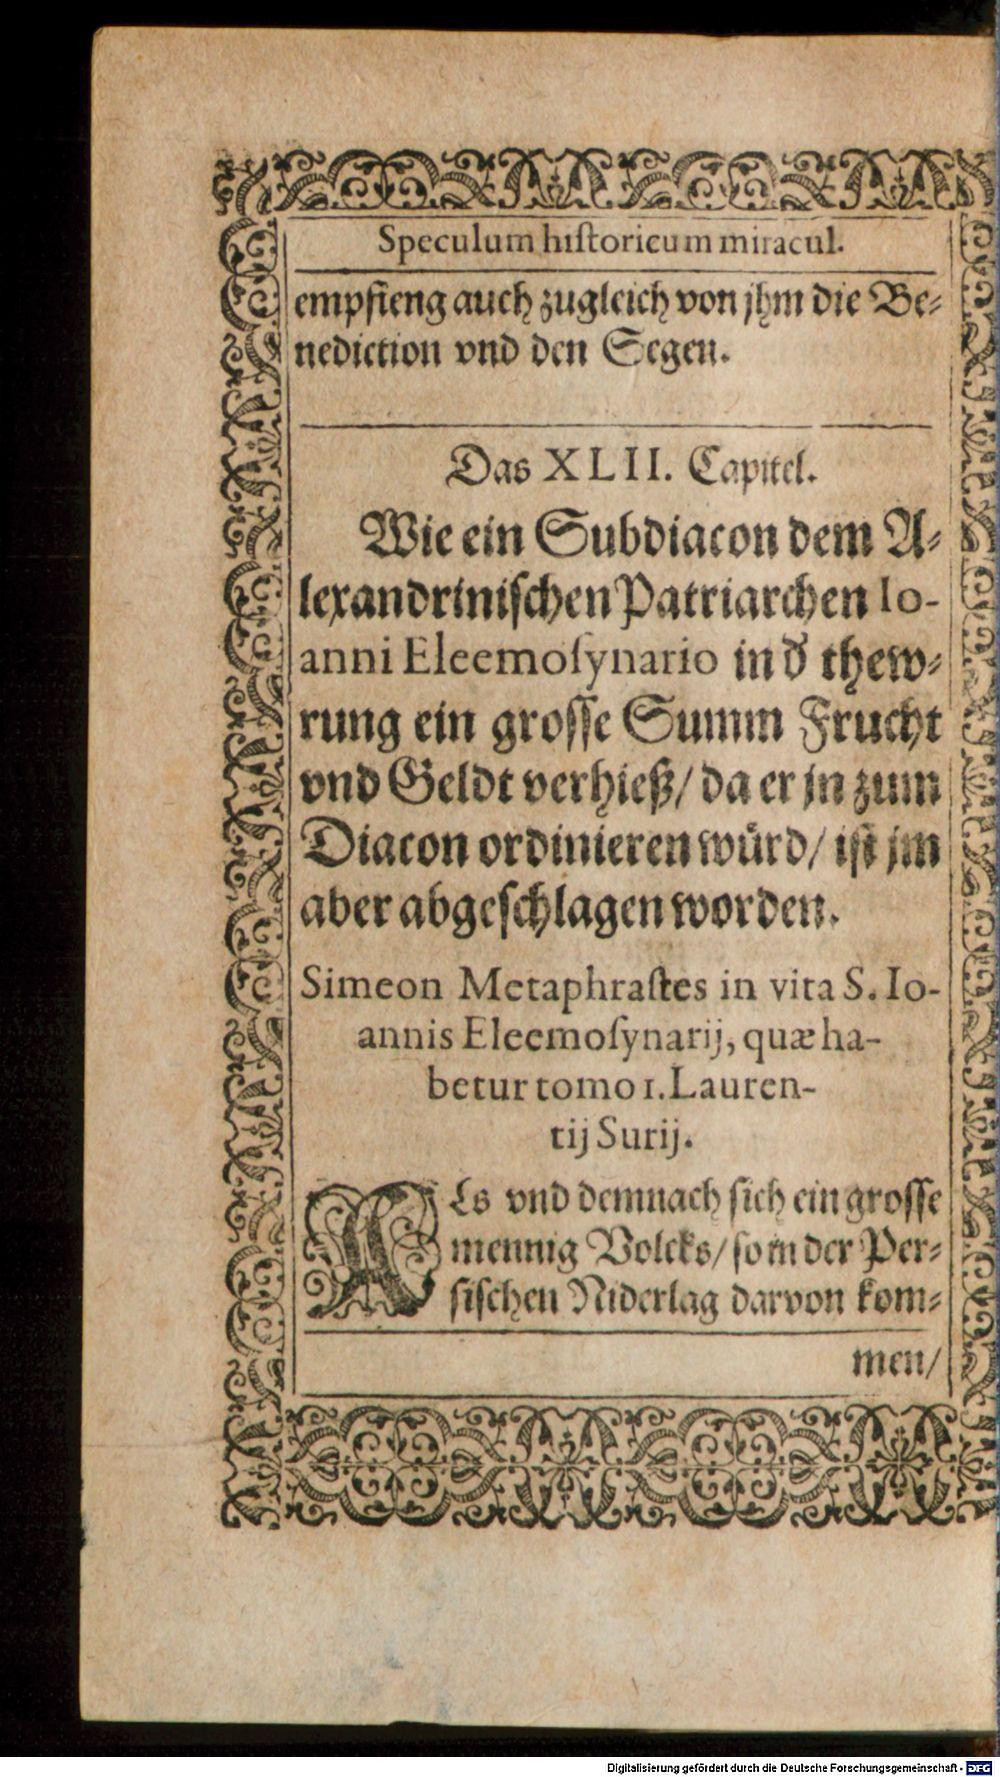 Speculum historicum miracul.
empfieng auch zugleich von jhm die Be⸗
nediction vnd den Segen.
Das XLII. Capitel.
Wie ein Subdiacon dem A⸗
lexandrinischen Patriarchen Io-
anni Eleemoſynario in dˀ thew⸗
rung ein grosse Summ Frucht
vnd Geldt verhieß/ da er jn zum
Diacon ordinieren wuͤrd/ ist jm
aber abgeschlagen worden.
Simeon Metaphraſtes in vita S. Io-
annis Eleemoſynarij, quæ ha-
betur tomo 1. Lauren-
tij Surij.
ALs vnd demnach sich ein grosse
mennig Volcks/ so in der Per⸗
sischen Niderlag darvon kom⸗
men/
Digitalisierung gefördert durch die Deutsche Forschungsgemeinschaft - DFG